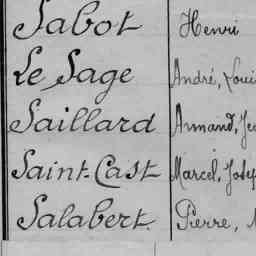 Sabot Henri
Le Sage André, Loui
Saillard Armand, Je
Saint-Cast Marcel, Josep
Salabert Pierre,